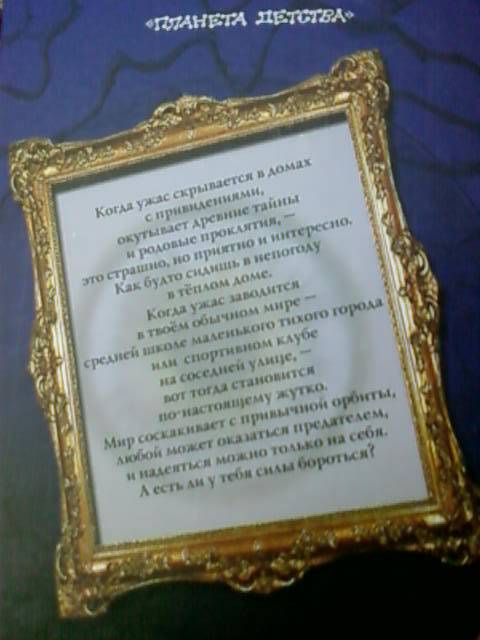 «ПЛАНЕТА ДЕТСТВА»
Когда ужас скрывается в домах
с привидениями,
окутывает древние тайны
и родовые проклятия, —
это страшно, но приятно и интересно.
Как будто сидишь в непогоду
в тёплом доме.
Когда ужас заводится
в твоём обычном мире —
средней школе маленького тихого города
или спортивном клубе
на соседней улице, —
вот тогда становится
по-настоящему жутко.
Мир соскакивает с привычной орбиты,
любой может оказаться предателем,
и надеяться можно только на себя.
А есть ли у тебя силы бороться?